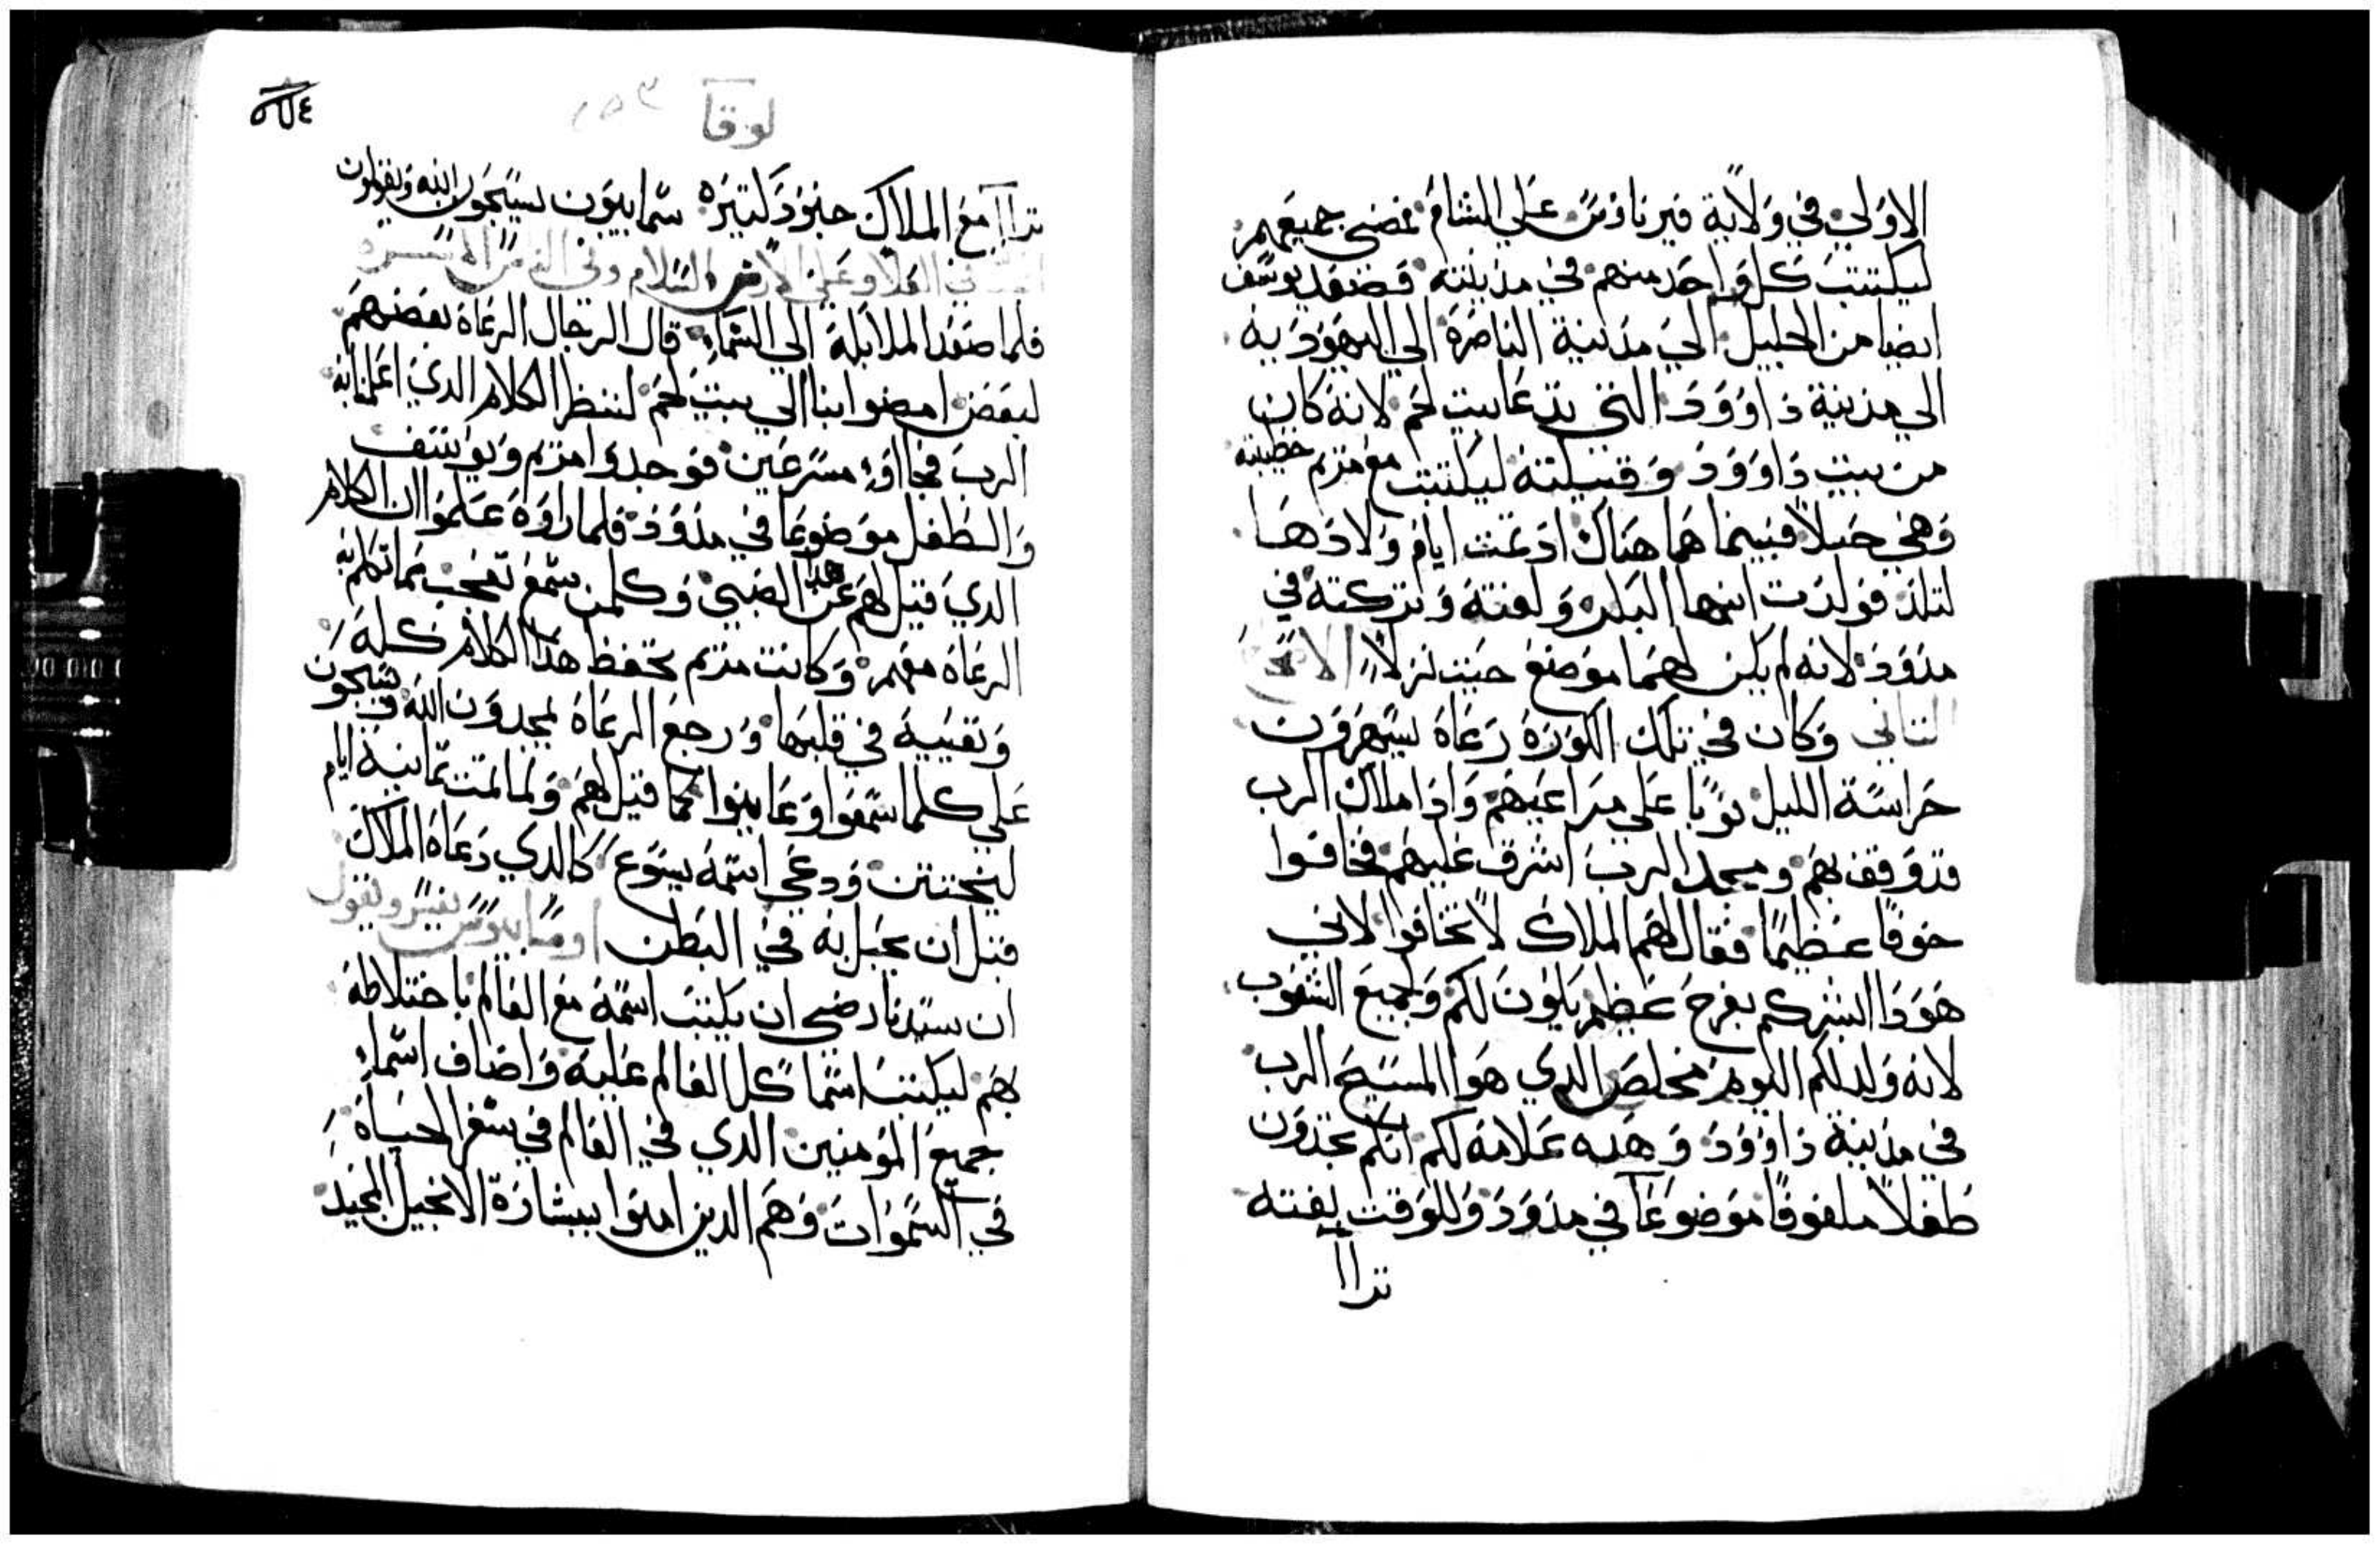 الاولي في ولاية قيرناوس علي الشام فمضي جميعهم
ليكتتب كل واحد منهم في مدينته فصعد يوسف
ايضا من الجليل الي مدينة الناصرة الي اليهودية
الي مدينة داوود التي تدعا بيت لحم لانه كان
من بيت داوود وقبيلته ليكتتب مع مريم خطيبته
وهي حبلا فبينما هما هناك اد تمت ايام ولادها
لتلد فولدت ابنها البكر ولفته وتركته في
مدود لانه لم يكن لهما موضع حيت نزلا الاصحاح
التاني وكان في تلك الكورة رعاة يسهرون
حراسة الليل نوبا علي مراعيهم وادا ملاك الرب
قد وقف بهم ومجد الرب اشرق عليهم فخافوا
خوفا عظيما فقال لهم الملاك لا تخافوا لاني
هودا ابشركم بفرح عظيم يكون لكم ولجميع الشعوب
لانه ولد لكم اليوم مخلص الدي هو المسيح الرب
في مدينة داوود وهده علامة لكم انكم تجدون
طفلا ملفوفا موضوعا في مدود وللوقت بغته
تراا
لوقا
تراا مع الملاك جنود كتيره سماييون يسبحون الله ويقولون
في العلا وعلي الارض السلام وفي الناس المسره
فلما صعد الملايكة الي السماء قال الرجال الرعاة بعضهم
لبعض امضوا بنا الي بيت لحم لننظر الكلام الدي اعلمنا به
الرب فجااوا مسرعين فوجدوا مريم ويوسف
والطفل موضوعا في مدود فلما راوه علموا ان الكلام
الدي قيل لهم عن هدا الصبي وكلمن سمع تعجب مما تكلم به
الرعاة معهم وكانت مريم تحفظ هدا الكلام كله
وتقيسه في قلبها ورجع الرعاة يمجدون الله ويسبحون
علي كلما سمعوا وعاينوا كما قيل لهم ولما تمت تمانية ايام
ليختتن ودعي اسمه يسوع كالدي دعاه الملاك
قبل ان يحبل به في البطن اوسابيوس يفسر ويقول
ان سيدنا رضي ان يكتتب اسمه مع العالم باختلاطه
بهم ليكتتب اسما كل العالم عليه واضاف اسماء
جميع المؤمنين الدي في العالم في سفر الحياة
في السموات وهم الدين امنوا ببشارة الانجيل المجيد